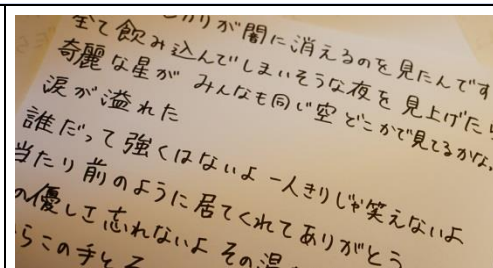 かりが闇に消えるのを見たんです
全て飲み込んでしまいそうな夜を見上げたら
奇麗な星が みんなも同じ空どこかで見てるかな。
涙が溢れた
誰だって強くはないよ 一人きりじゃ笑えないよ
当たり前のように居てくれてありがとう
の優しさ忘れないよ その温
らこの手を